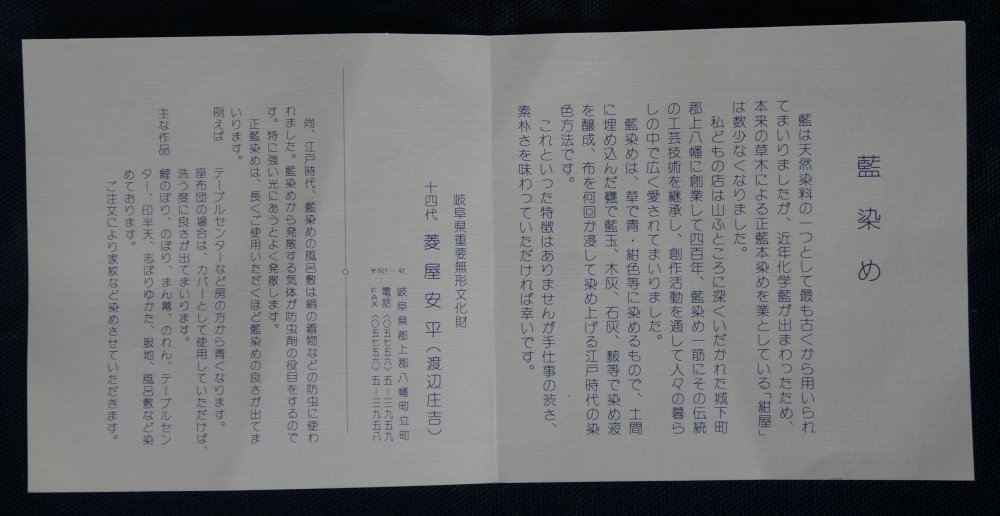 藍染め
藍は天然染料の一つとして最も古くから用いられ
てまいりましたが、近年化学藍が出まわったため、
本来の草木による正藍本染めを業としている「紺屋」
は数少なくなりました。
私どもの店は山ふところに深くいだかれた城下町
郡上八幡に創業して四百年、藍染め一筋にその伝統
の工芸技術を継承し、創作活動を通して人々の暮ら
しの中で広く愛されてまいりました。
藍染めは、草で青・紺色等に染めるもので、土間
に埋め込んだ甕で藍玉、木灰、石灰、麩等で染め液
を醸成、布を何回か浸して染め上げる江戸時代の染
色方法です。
これといった特徴はありませんが手仕事の渋さ、
素朴さを味わっていただければ幸いです。
岐阜県重要無形文化財
十四代 菱屋安平(渡辺庄吉)
〒501-42
岐阜県郡上郡八幡町立町
電話(〇五七五六)五-三九五九
FAX(〇五七五六)五-三九五八
尚、江戸時代、藍染めの風呂敷は絹の着物などの防虫に使わ
れました。藍染めから発散する気体が防虫剤の役目をするので
す。特に強い光にあうとよく発散します。
正藍染めは、長くご使用いただくほど藍染めの良さが出てま
いります。
例えば テーブルセンターなど房の方から青くなります。
座布団の場合は、カバーとして使用していただけば、
洗う度に良さが出てまいります。
主な作品 鯉のぼり、のぼり、まん幕、のれん、テーブルセン
ター、印半天、志ぼりゆかた、服地、風呂敷など染
めております。
ご注文により家紋など染めさせていただきます。